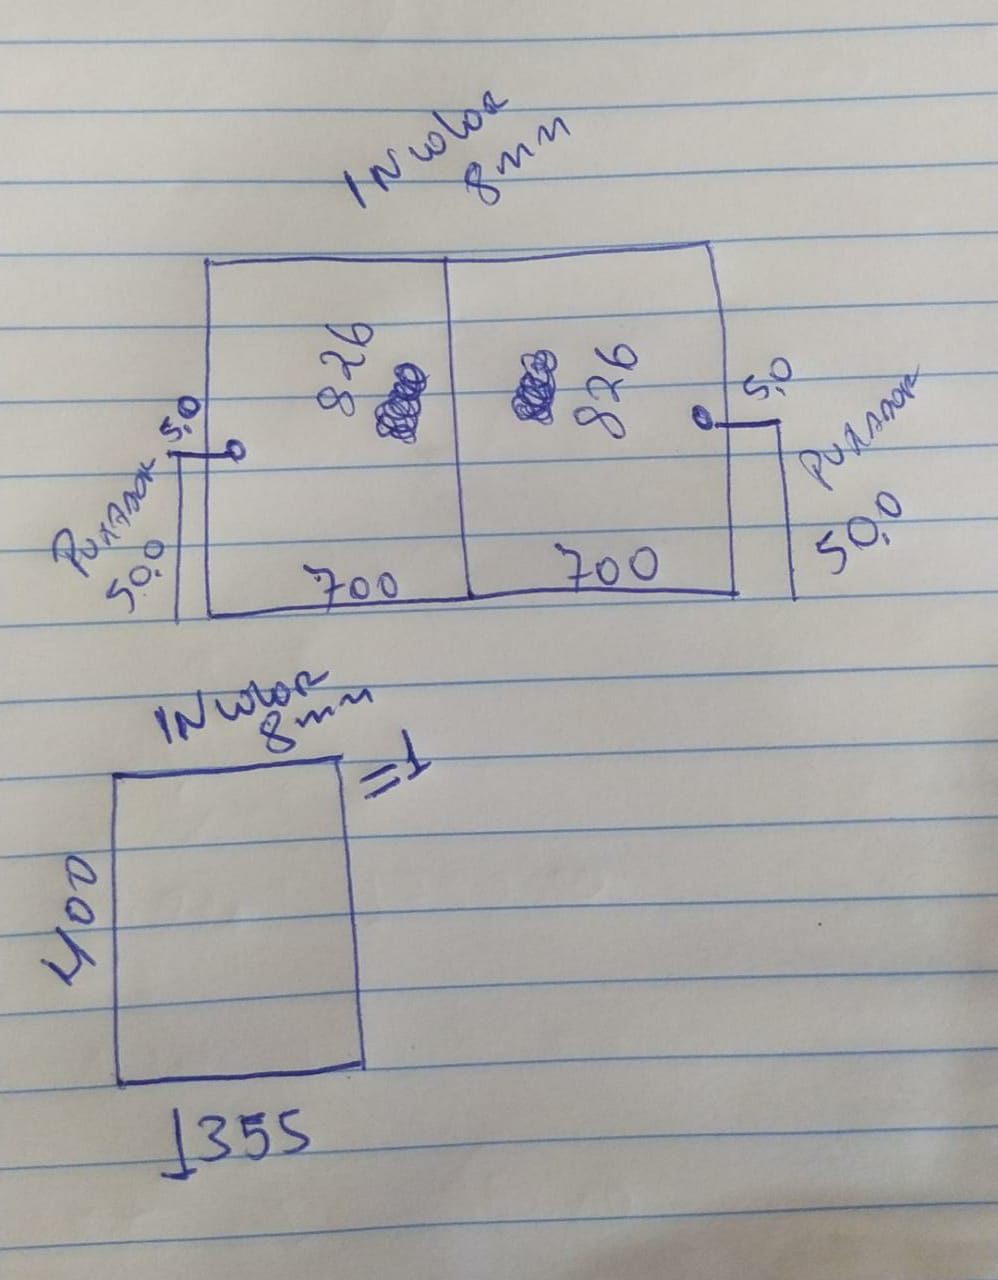 INcolor
8mm
826
826
5,0
5,0
Puxador
Puxador
50,0
50,0
700
700
INcolor
8mm
=1
400
1355